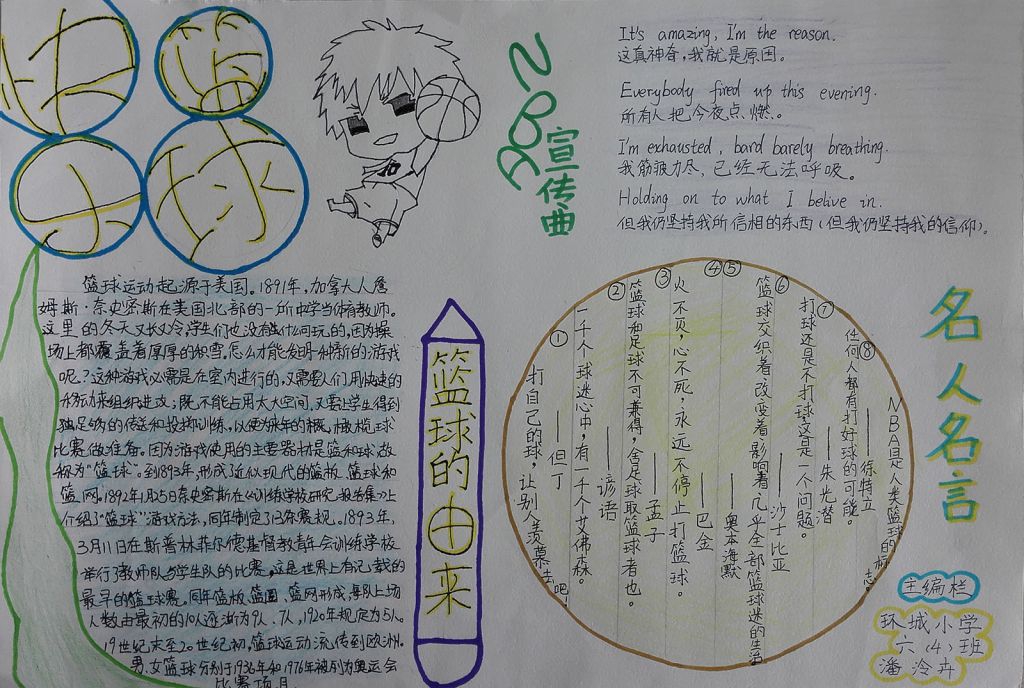 快篮
乐球
NBA
宣传曲
It's amazing, I'm the reason.
这真神奇,我就是原因。
Everybody fired up this evening.
所有人把今夜点燃。
I'm exhausted, bard barely breathing.
我筋疲力尽,已经无法呼吸。
Holding on to what I belive in.
但我仍坚持我所信相的东西(但我仍坚持我的信仰)。
篮球运动起源于美国。1891年,加拿大人詹
姆斯·奈史密斯在美国北部的一所中学当体育教师。
这里的冬天又长又冷,学生们也没有甚什么可玩的,因为操
场上都覆盖着厚厚的积雪,怎么才能发明一种新的游戏
呢?这种游戏必需是在室内进行的,又需要人们用快速的
移动来组织进攻;既不能占用太大空间,又要让学生得到
足够的传送和投掷训练,以便为来年的橄榄球
比赛做准备。因为游戏使用的主要器材是篮和球,故
称为“篮球”。到1893年,形成了近似现代的篮板、篮球和
篮网。1892年1月5日奈史密斯在《训练学校研究报告集》上
介绍了“篮球”游戏方法,同年制定了13条赛规。1893年,
3月11日在斯普林菲尔德基督教青年会训练学校
举行了教师队与学生队的比赛,这是世界上有记载的
最早的篮球赛。同年篮板、篮圈、篮网形成,每队上场
人数由最初的10人逐渐为9人、7人,1920年规定为5人。
19世纪末至20世纪初,篮球运动流传到欧洲。
男、女篮球分别于1936年和1976年被列为奥运会
比赛项目。
篮球的由来
名人名言
① 打自己的球,让别人羡慕去吧!
——但丁
② 一千个球迷心中,有一千个艾佛森。
——谚语
③ 篮球和足球不可兼得,舍足球取篮球者也。
——孟子
④ 火不灭,心不死,永远不停止打篮球。
——巴金
⑤ ——奥本海默
⑥ 篮球交织着改变着影响着几乎全部篮球迷的生活
——沙士比亚
⑦ 打球还是不打球这是一个问题。
——朱光潜
⑧ 任何人都有打好球的可能。
——徐特立
NBA是人类篮球的标志。
主编栏
环城小学
六(4)班
潘泠卉